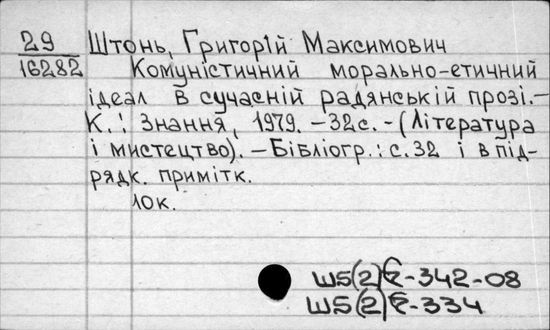 29
16282
Штонь, Григорій Максимович
Комуністичний морально-етичний
ідеал в сучасній радянській прозі.–
К.: Знання, 1979. – 32с. – (Література
і мистецтво). – Бібліогр.: с. 32 і в під-
рядк. примітк.
10к.
Ш5(2)Є-342-08
Ш5(2)Є-334